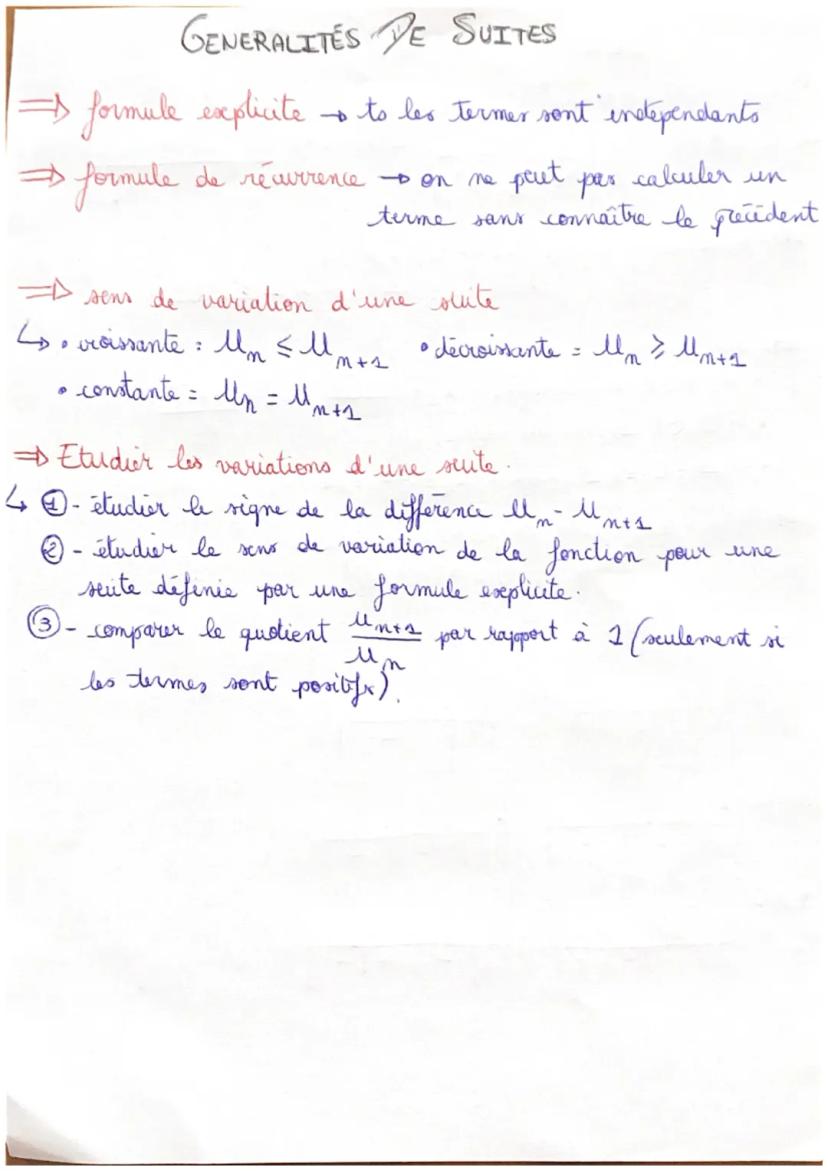 GENERALITÉS DE SUITES
⇒ formule explicite → to les termes sont indépendants
⇒ formule de récurrence → on ne peut pas calculer un
terme sans connaître le précédent
⇒ sens de variation d'une suite
↳ • croissante : Un ≤ Un+1 • décroissante = Un ≥ Un+1
• constante = Un = Un+1
⇒ Etudier les variations d'une suite.
↳ ① - étudier le signe de la différence Un - Un+1
② - étudier le sens de variation de la fonction pour une
suite définie par une formule explicite.
③ - comparer le quotient Un+1/Un par rapport à 1 (seulement si
les termes sont positifs).